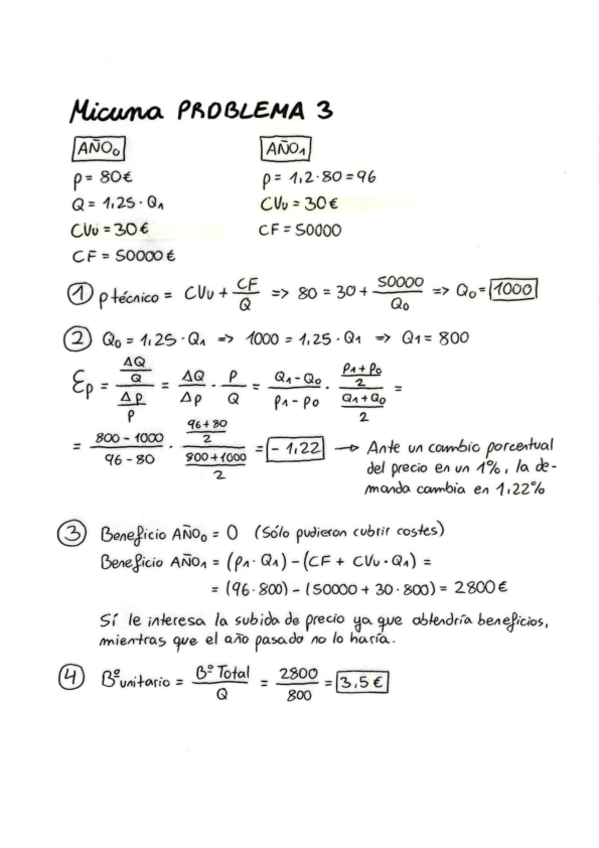 Micuna PROBLEMA 3
AÑO₀ AÑO₁
p = 80€ p = 1,2·80 = 96
Q = 1,25·Q₁ CVu = 30€
CVu = 30€ CF = 50000
CF = 50000€
① p técnico = CVu + CF/Q => 80 = 30 + 50000/Q₀ => Q₀ = 1000
② Q₀ = 1,25·Q₁ => 1000 = 1,25·Q₁ => Q₁ = 800
Ep = (ΔQ/Q)/(Δp/p) = ΔQ/Δp · p/Q = (Q₁-Q₀)/(p₁-p₀) · ((p₁+p₀)/2)/((Q₁+Q₀)/2) =
= (800-1000)/(96-80) · ((96+80)/2)/((800+1000)/2) = -1,22 → Ante un cambio porcentual
del precio en un 1%, la de-
manda cambia en 1,22%
③ Beneficio AÑO₀ = 0 (Sólo pudieron cubrir costes)
Beneficio AÑO₁ = (p₁·Q₁) - (CF + CVu·Q₁) =
= (96·800) - (50000 + 30·800) = 2800€
Sí le interesa la subida de precio ya que obtendría beneficios,
mientras que el año pasado no lo haría.
④ Bº unitario = Bº Total/Q = 2800/800 = 3,5€